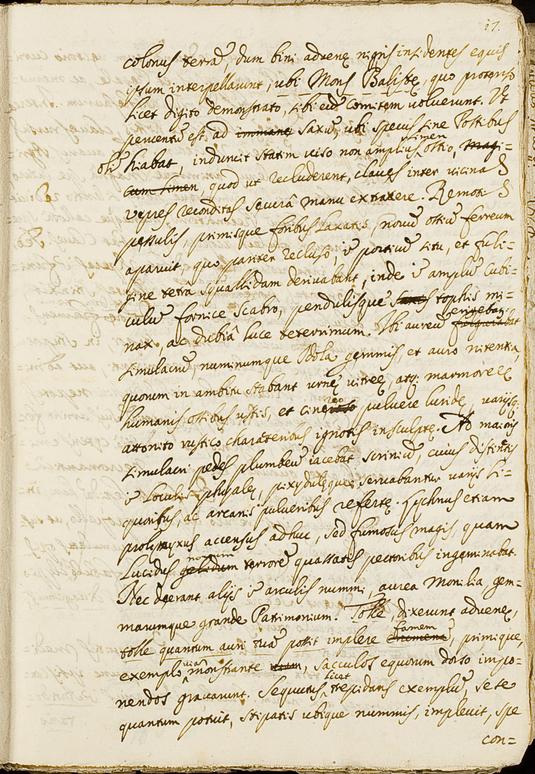 17.
colonus terrã dum bini advenę nigris insidentes equis
ipsum interpellavunt, ubi Mons Balistę, quo protenus
licet digito demonstrato, sibi eum comitem voluerunt. Ut
perventũ est, ad immane saxũ, ubi specus sine Postibus
hiabat, induxit statim viso non amplius ostio, limen
cum limen, quod ut recluderent, claves inter vicina
vepres reconditas secura manu extraxere. Remotis
pessulis, primisque foribus laxatis, novũ ostiũ ferreum
aparuit, quo pariter recluso, in porticũ situ, et fuli-
gine tetra squallidam derivabant, inde in amplũ cubi-
culũ fornice scabro, pendulisque tophis mi-
nax, ac dubia luce teterrimum. Ibi aureũ
simulacrũ, numinumque Idola gemmis, et auro nitentia
quorum in ambitu stabant urnę vitreę, atq; marmoreę
humanis ossibus ustis, et pulvere luridę, varijsq;
attonito rustico characteribus ignotis insculptę. Ad maioris
simulacri pedes plumbeũ iacebat scrinium cuius distinctis
in loculis phialę, pixydesque servabantur varijs li-
quoribus, ac arcanis pulveribus refertę. Lychnus etiam
polymyxus accensus adhuc, sed fumosus magis, quam
lucidus terrorẽ quassatis pectoribus ingeminabat.
Nec deerant alijs in arculis nummi, aurea monilia, gem-
marumque grande Patrimonium. Tolle dixerunt advenę,
tolle quantum auri tuã possit implere famem, primique,
exemplo viam monstrante, sacculos equorum dorso impo-
nendos gravarunt. Sequutus licet trepidans exemplũ, se se
quantum potuit, stipatis ubique nummis, implevit, spe
con=